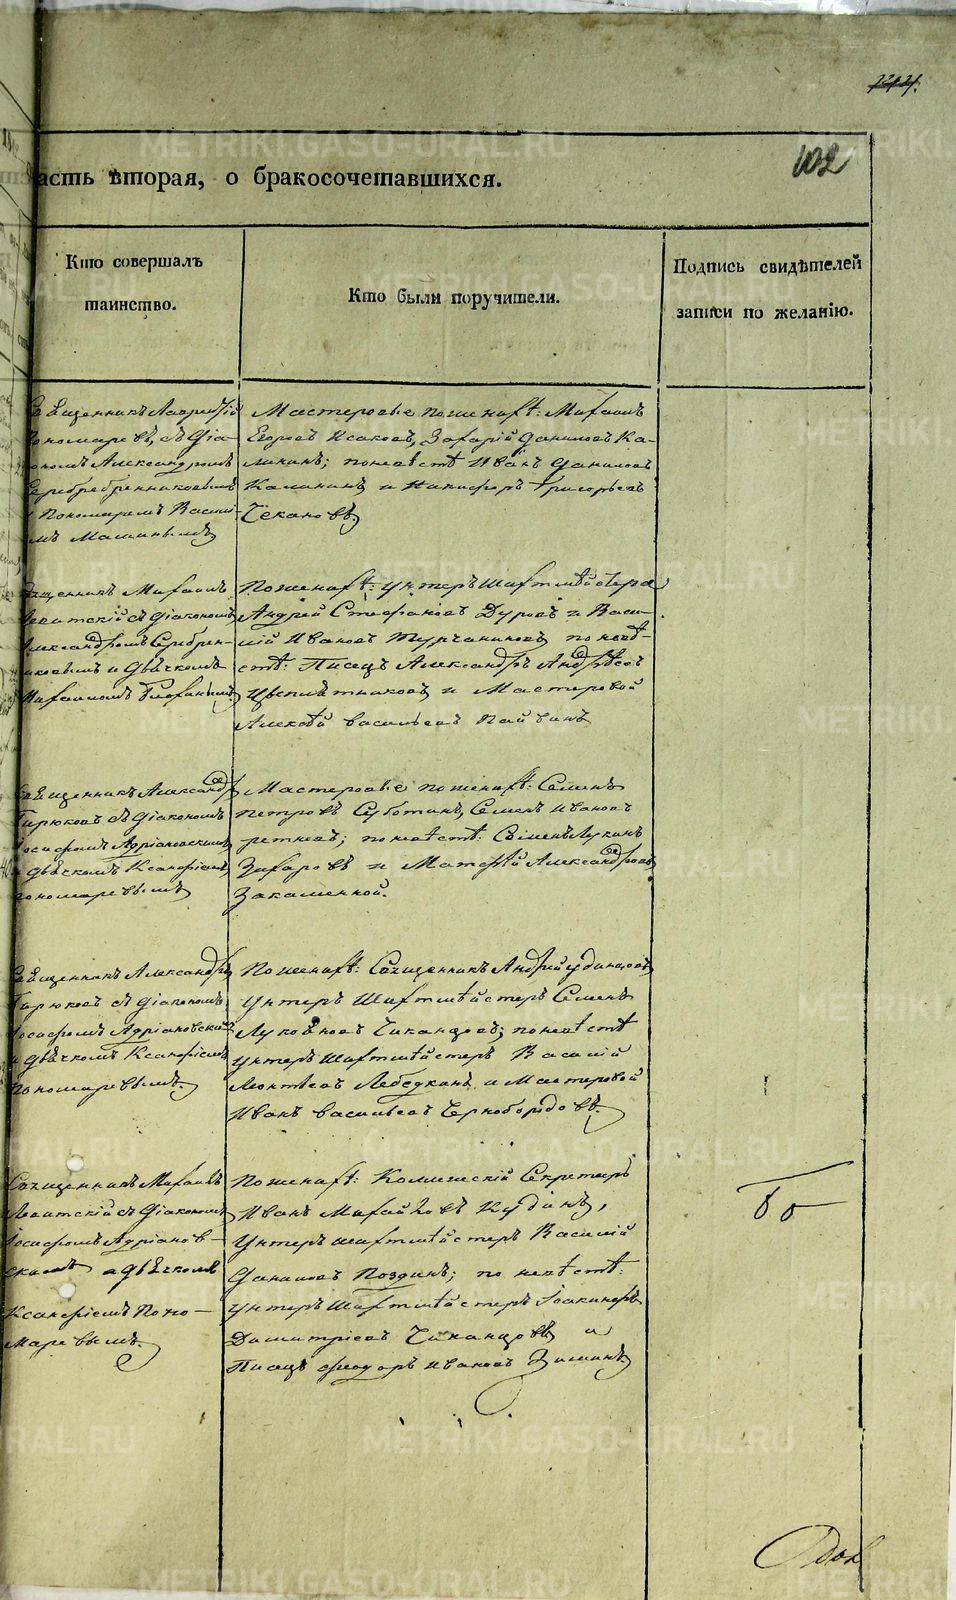 102
асть вторая, о бракосочетавшихся.
Кто совершалъ
таинство.
Кто были поручители.
Подпись свидѣтелей
записи по желанію.
Священникъ Лаврентій
Пономаревъ, съ Діа-
кономъ Александромъ
Серебренниковымъ
и Пономаремъ Васил-
Машинымъ
Мастеровые по женихѣ: Михаилъ
Егоровъ Исаковъ, Захарій Даниловъ Ка-
лининъ; по невѣстѣ Иванъ Даниловъ
Калининъ и Никифоръ Григорьевъ
Чекановъ
Священникъ Михаилъ
Левитскій съ Діакономъ
Александромъ Серебрен-
никовымъ и Дьячкомъ
Михаиломъ
По женихѣ: Унтеръ шихтмейстера
Андрей Стефановъ Дуровъ и Васи-
лій Ивановъ Турчаниновъ по невѣ-
стѣ: Писецъ Александръ Андреевъ
Цвѣтниковъ и Мастеровой
Алексѣй Васильевъ Пайвинъ
Священникъ Александръ
Бирюковъ съ Діакономъ
Іосифомъ Адріановскимъ
и дьячкомъ Ксанфіемъ
Пономаревымъ
Мастеровые по женихѣ: Семенъ
Петровъ Суботинъ, Семенъ Ивановъ
по невѣстѣ:
Захаровъ и Матфей Александровъ
Закаменной.
Священникъ Александръ
Бирюковъ съ Діакономъ
Іосифомъ Адріановскимъ
и дьячкомъ Ксанфіемъ
Пономаревымъ.
По женихѣ: Священникъ Андрей Удинцовъ
Унтеръ Шихтмейстеръ Семенъ
Чикандовъ; по невѣстѣ
Унтеръ Шихтмейстеръ Василій
Леонтьевъ Лебедкинъ и Мастеровой
Иванъ Васильевъ Чернобородовъ.
Священникъ Михаилъ
Левитскій съ Діакономъ
Іосифомъ Адріанов-
скимъ и Дьячкомъ
Ксанфіемъ Поно-
маревымъ.
По женихѣ: Колежскій Секретарь
Иванъ Михайловъ Кудинъ,
Унтеръ шихтмейстеръ Василій
Даниловъ Поздинъ; по невѣстѣ:
Унтеръ Шихтмейстеръ Іоакимъ
Димитріевъ Чикандовъ и
Писецъ Феодоръ Ивановъ Зиминъ.
METRIKI.GASO-URAL.RU